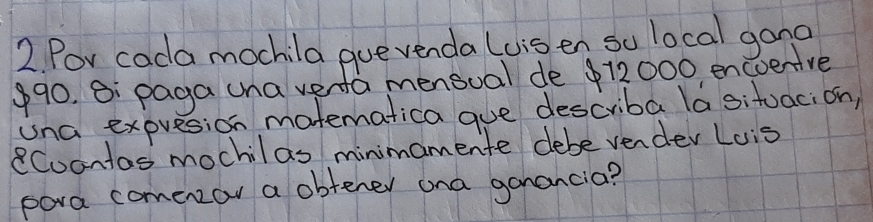 2. Por cada mochila que venda Luis en su local gana
$90. Si paga una venta mensual de $12000, encuentre
una expresión matematica que describa la situación,
¿Cuantas mochilas minimamente debe vender Luis
para comenzar a obtener una ganancia?